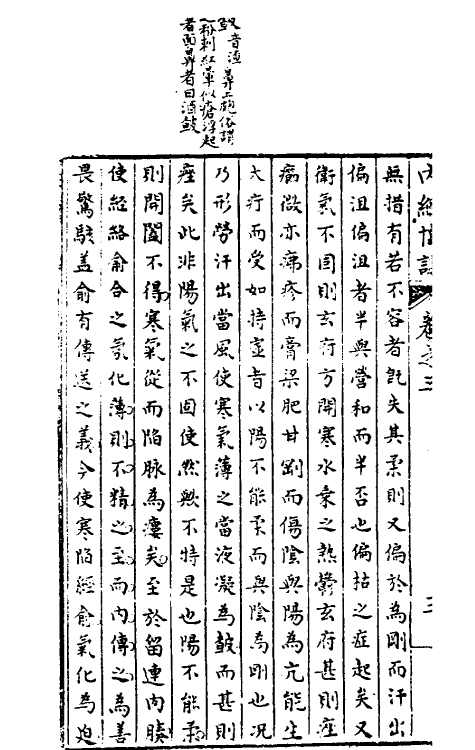 皶音渣鼻上皰俗謂
之粉刺紅暈似瘡浮起
者面鼻者曰酒皶
內經博議 卷之三 三
無措有若不容者訖失其柔則又偏於為剛而汗出
偏沮偏沮者半與營和而半否也偏枯之症起矣又
衛氣不固則玄府方開寒水乗之熱鬱玄府甚則痤
癤微亦疿疹而膏梁肥甘剛而傷陰與陽為亢能生
大疔而受如持虛皆以陽不能柔而與陰為剛也況
乃形勞汗出當風使寒氣薄之當液凝為皶而甚則
痤矣此非陽氣之不固使然歟不特是也陽不能柔
則開闔不得寒氣從而陷脉為瘻矣至於留連肉腠
使經絡俞合之氣化薄則不精之至而內傳之為善
畏驚駭盖俞有傳送之義今使寒陷經俞氣化為迫